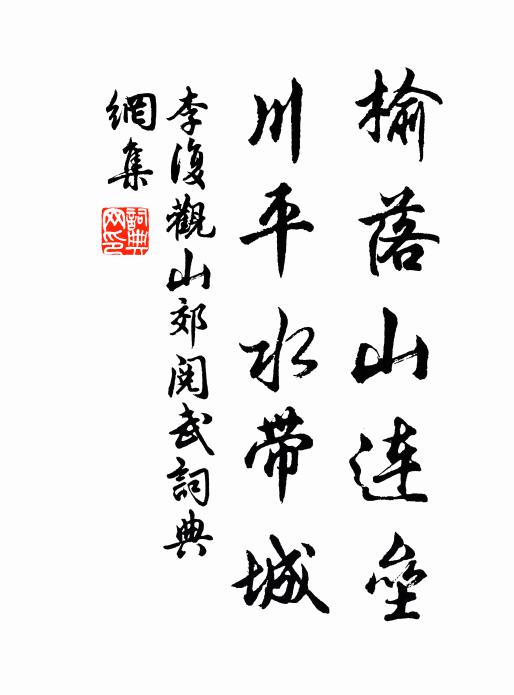 榆落山连垒
川平水带城
李復觀山郊閱武詞典
網集
詞典
网印